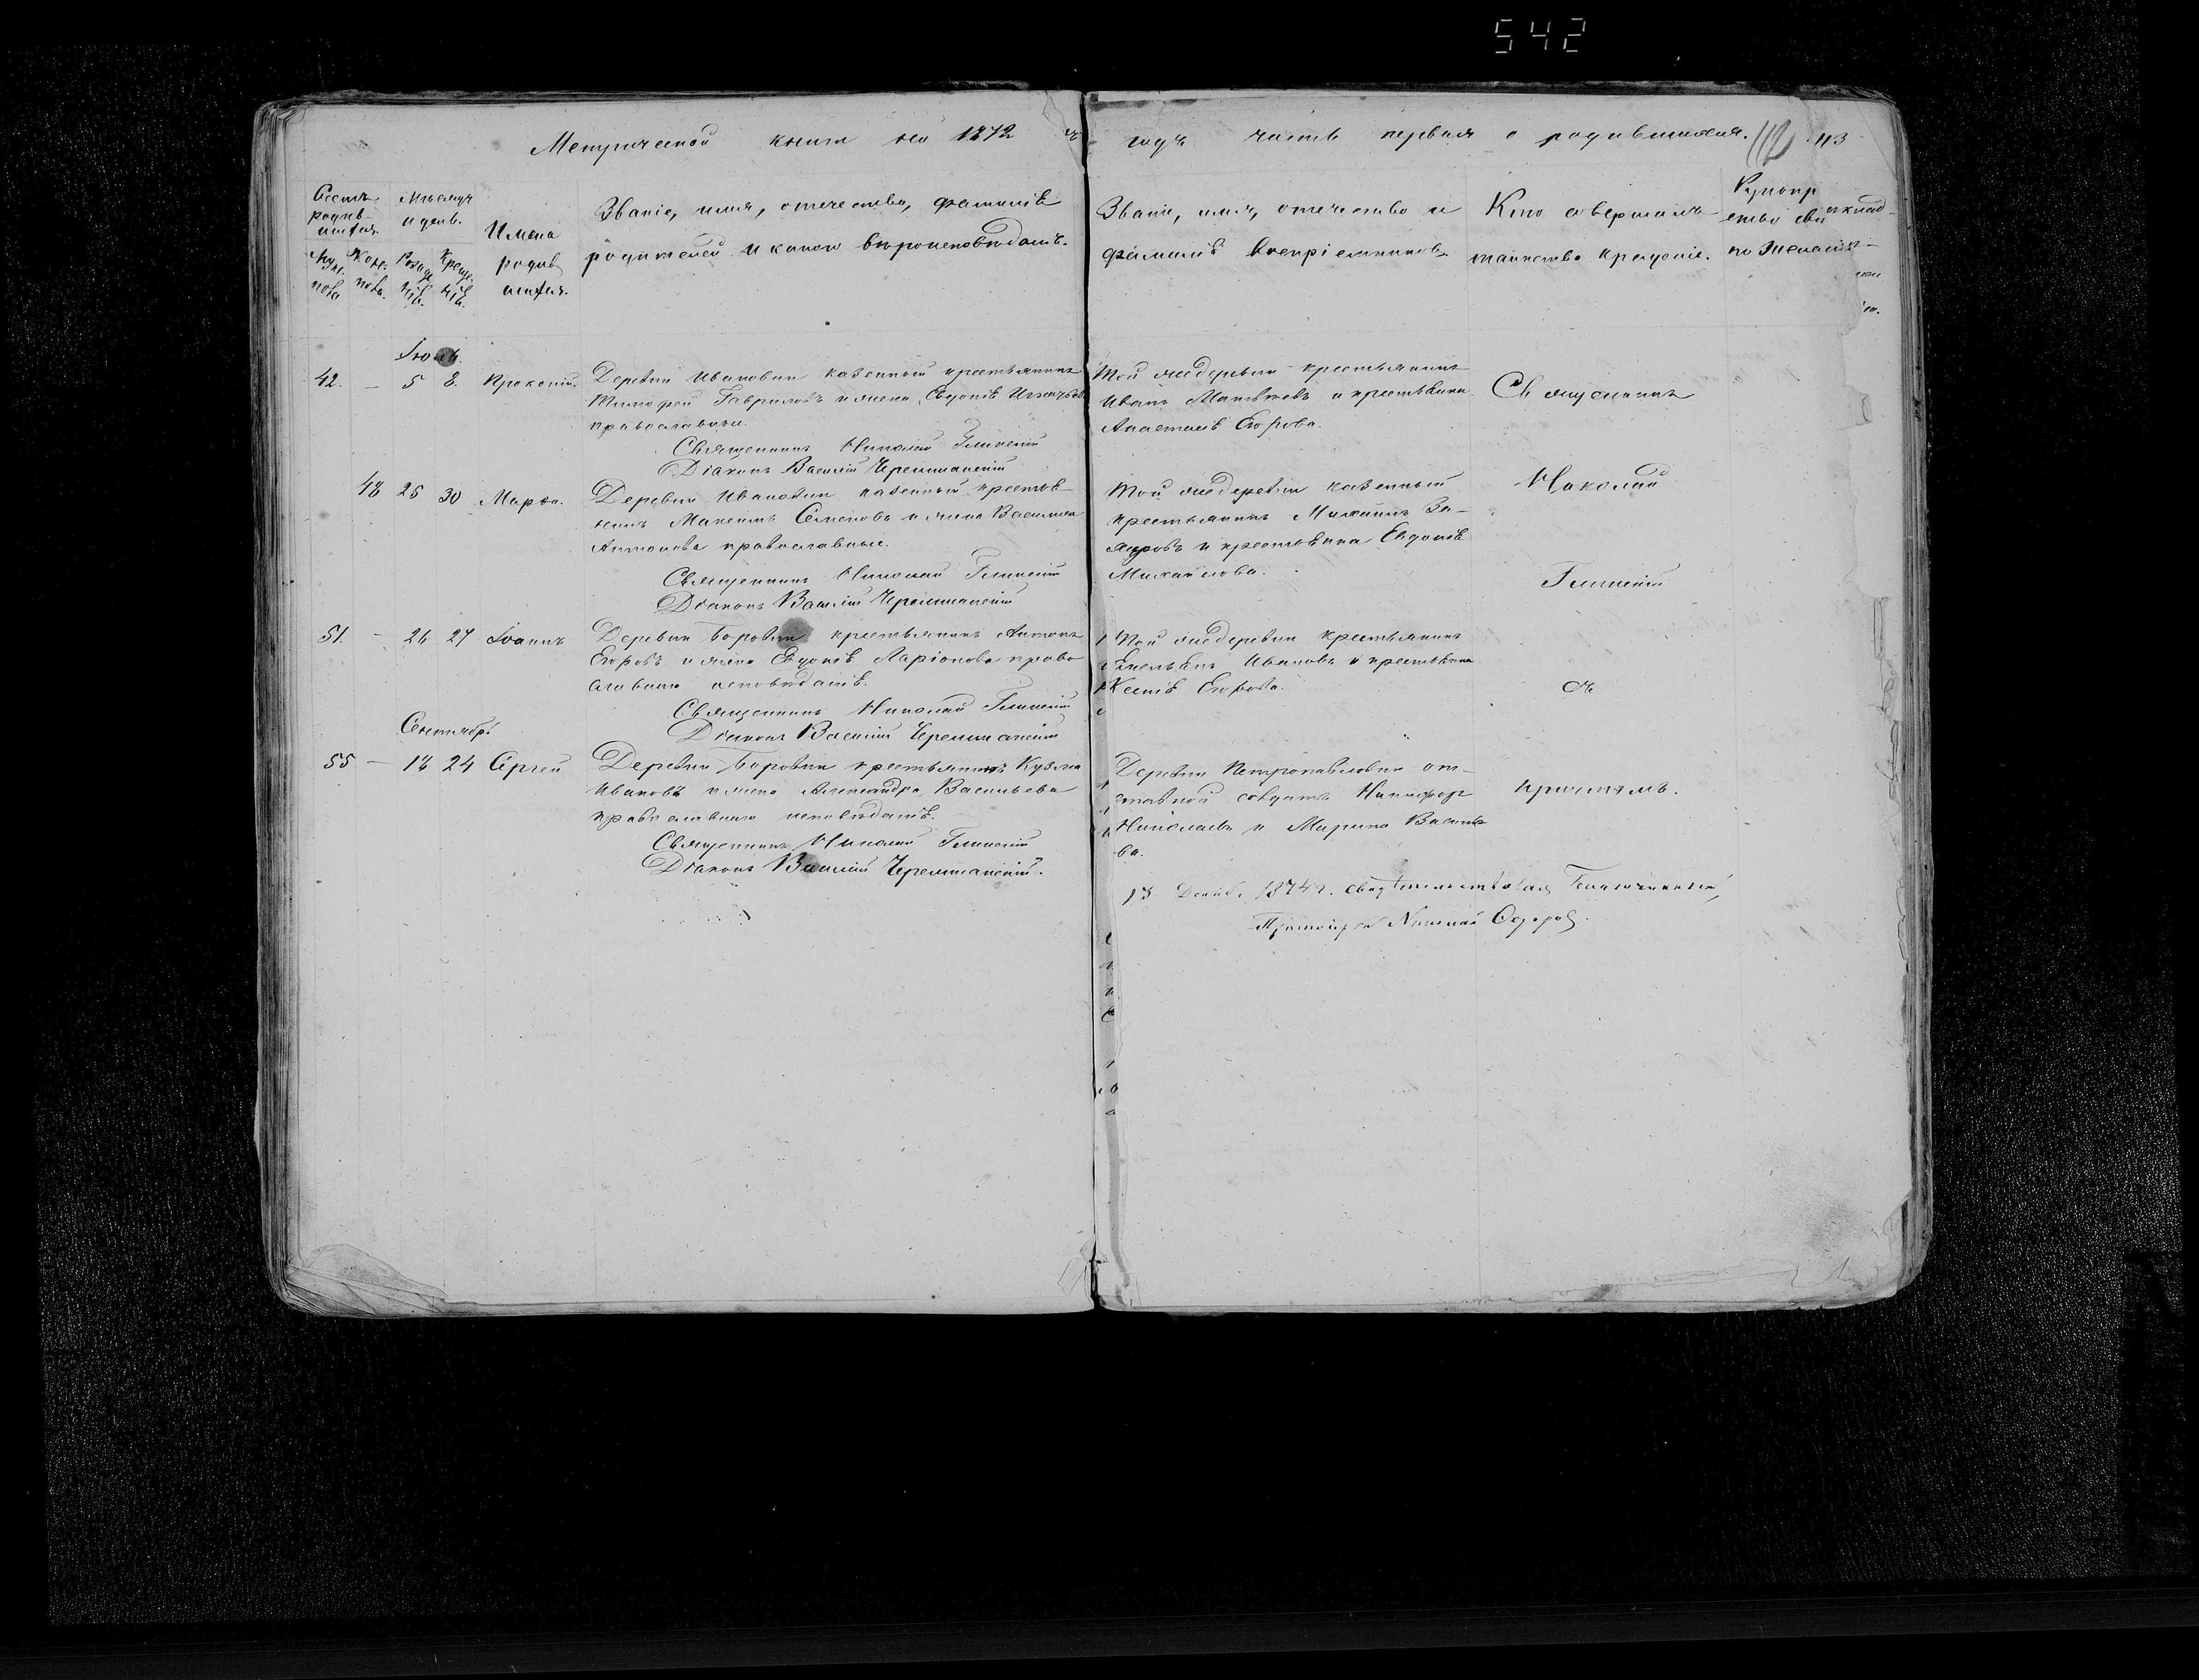 542
Метрической книги на 1872
годъ часть первая о родившихся. 112 113
Счетъ родив-шихся.
Мѣсяцъ и день.
Имена родив шихся.
Званіе, имя, отечество, фамилія
родителей и какого вѣроисповѣданія.
Муж. пола
Жен. пола.
Рожде нія.
Креще нія.
Званіе, имя, отечество и
фамилія воспріемниковъ.
Кто совершалъ
таинство крещенія.
Рукопр
ство сви
по желанію
Іюль.
42. – 5 8. Прокопій.
Деревни Ивановки казенный крестьянинъ
Тимофей Гавриловъ и жена Евдокія
православные.
Священникъ Николай Глинскій
Діаконъ Василій Черемшанскій
Той же деревни крестьянинъ
Иванъ Матвѣевъ и крестьянка
Анастасія Егорова.
48 25 30 Марѳа.
Деревни Ивановки казенный крестья-
нинъ Максимъ Семеновъ и жена Василиса
Антонова православные.
Священникъ Николай Глинскій
Діаконъ Василій Черемшанскій
Той же деревни казенный
крестьянинъ
и крестьянка Евдокія
Михайлова.
51. – 26 27 Іоаннъ
Деревни Боровки крестьянинъ Антонъ
Егоровъ и жена Евдокія Ларіонова право
славнаго исповѣданія.
Священникъ Николай Глинскій
Діаконъ Василій Черемшанскій
Той же деревни крестьянинъ
Емельянъ Ивановъ и крестьянка
Ксенія Егорова.
Сентябрь
55 – 18 24 Сергей
Деревни Боровки крестьянинъ Кузма
Ивановъ и жена Александра Васильева
православнаго исповѣданія.
Священникъ Николай Глинскій
Діаконъ Василій Черемшанскій.
Деревни Петропавловки от-
ставной солдатъ Никифоръ
Николаевъ и Марина Василье
ва.
Священникъ
Николай
Глинскій
съ
причтомъ.
13 Декаб. 1874 г. свидѣтельствовалъ Благочинный,
Протоіерей Николай